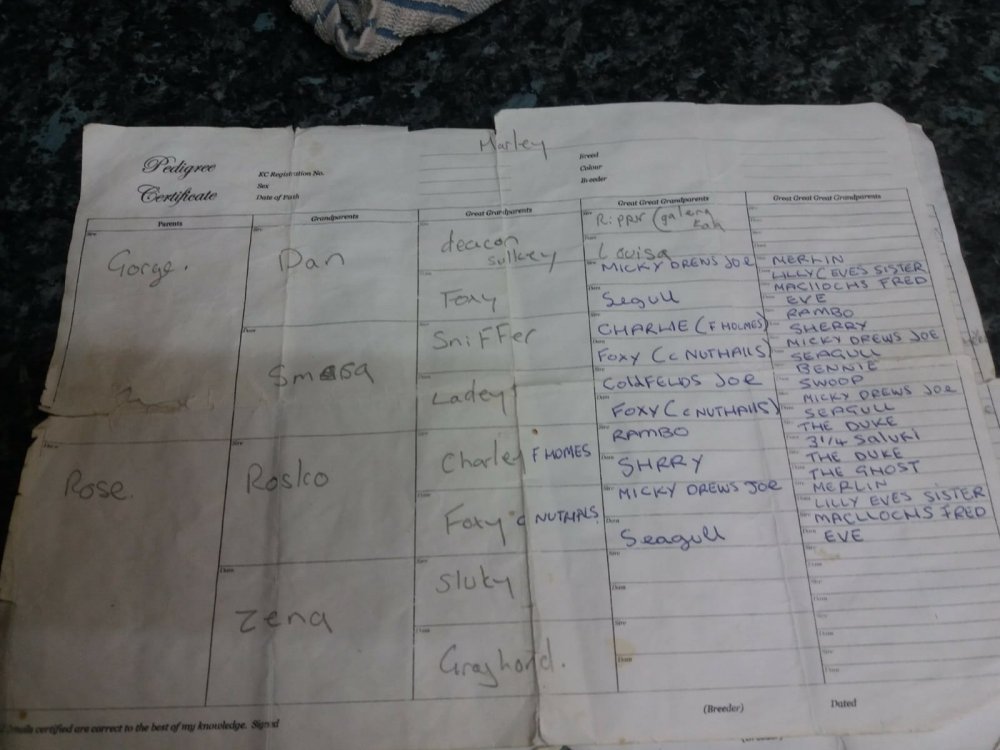 Marley
Pedigree
Certificate
KC Registration No.
Sex
Date of Birth
Breed
Colour
Breeder
Parents
Grandparents
Great Grandparents
Great Great Grandparents
Great Great Great Grandparents
Sire
Gorge.
Rose.
Sire
Dan
Dam
Smasa
Sire
Rosko
Dam
Zena
deacon
sulkey
Dam
Foxy
Sire
Sniffer
Dam
Ladey
Sire
Charley F HOMES
Dam
Foxy c NUTHALS
Sire
Sluky
Dam
Grayhond.
Sire
Ripper (galeng
Dam
Louisa
MICKY DREWS JOE
Dam
Segull
CHARLIE (F HOLMES)
FOXY (c NUTHALLS)
COLDFELDS JOE
Dam
FOXY (c NUTHALLS)
RAMBO
Dam
SHRRY
Sire
MICKY DREWS JOE
Dam
Seagull
Sire
Dam
Sire
Dam
MERLIN
LILLY (EVES SISTER
MACLLOCHS FRED
EVE
RAMBO
SHERRY
MICKY DREWS JOE
SEAGULL
BENNIE
SWOOP
MICKY DREWS JOE
SEAGULL
THE DUKE
3 1/4 SALUKI
THE DUKE
THE GHOST
MERLIN
LILLY EVES SISTER
MACLLOCHS FRED
EVE
Sire
Dam
Sire
Dam
Sire
Dam
Sire
Dam
details certified are correct to the best of my knowledge. Signed
(Breeder)
Dated